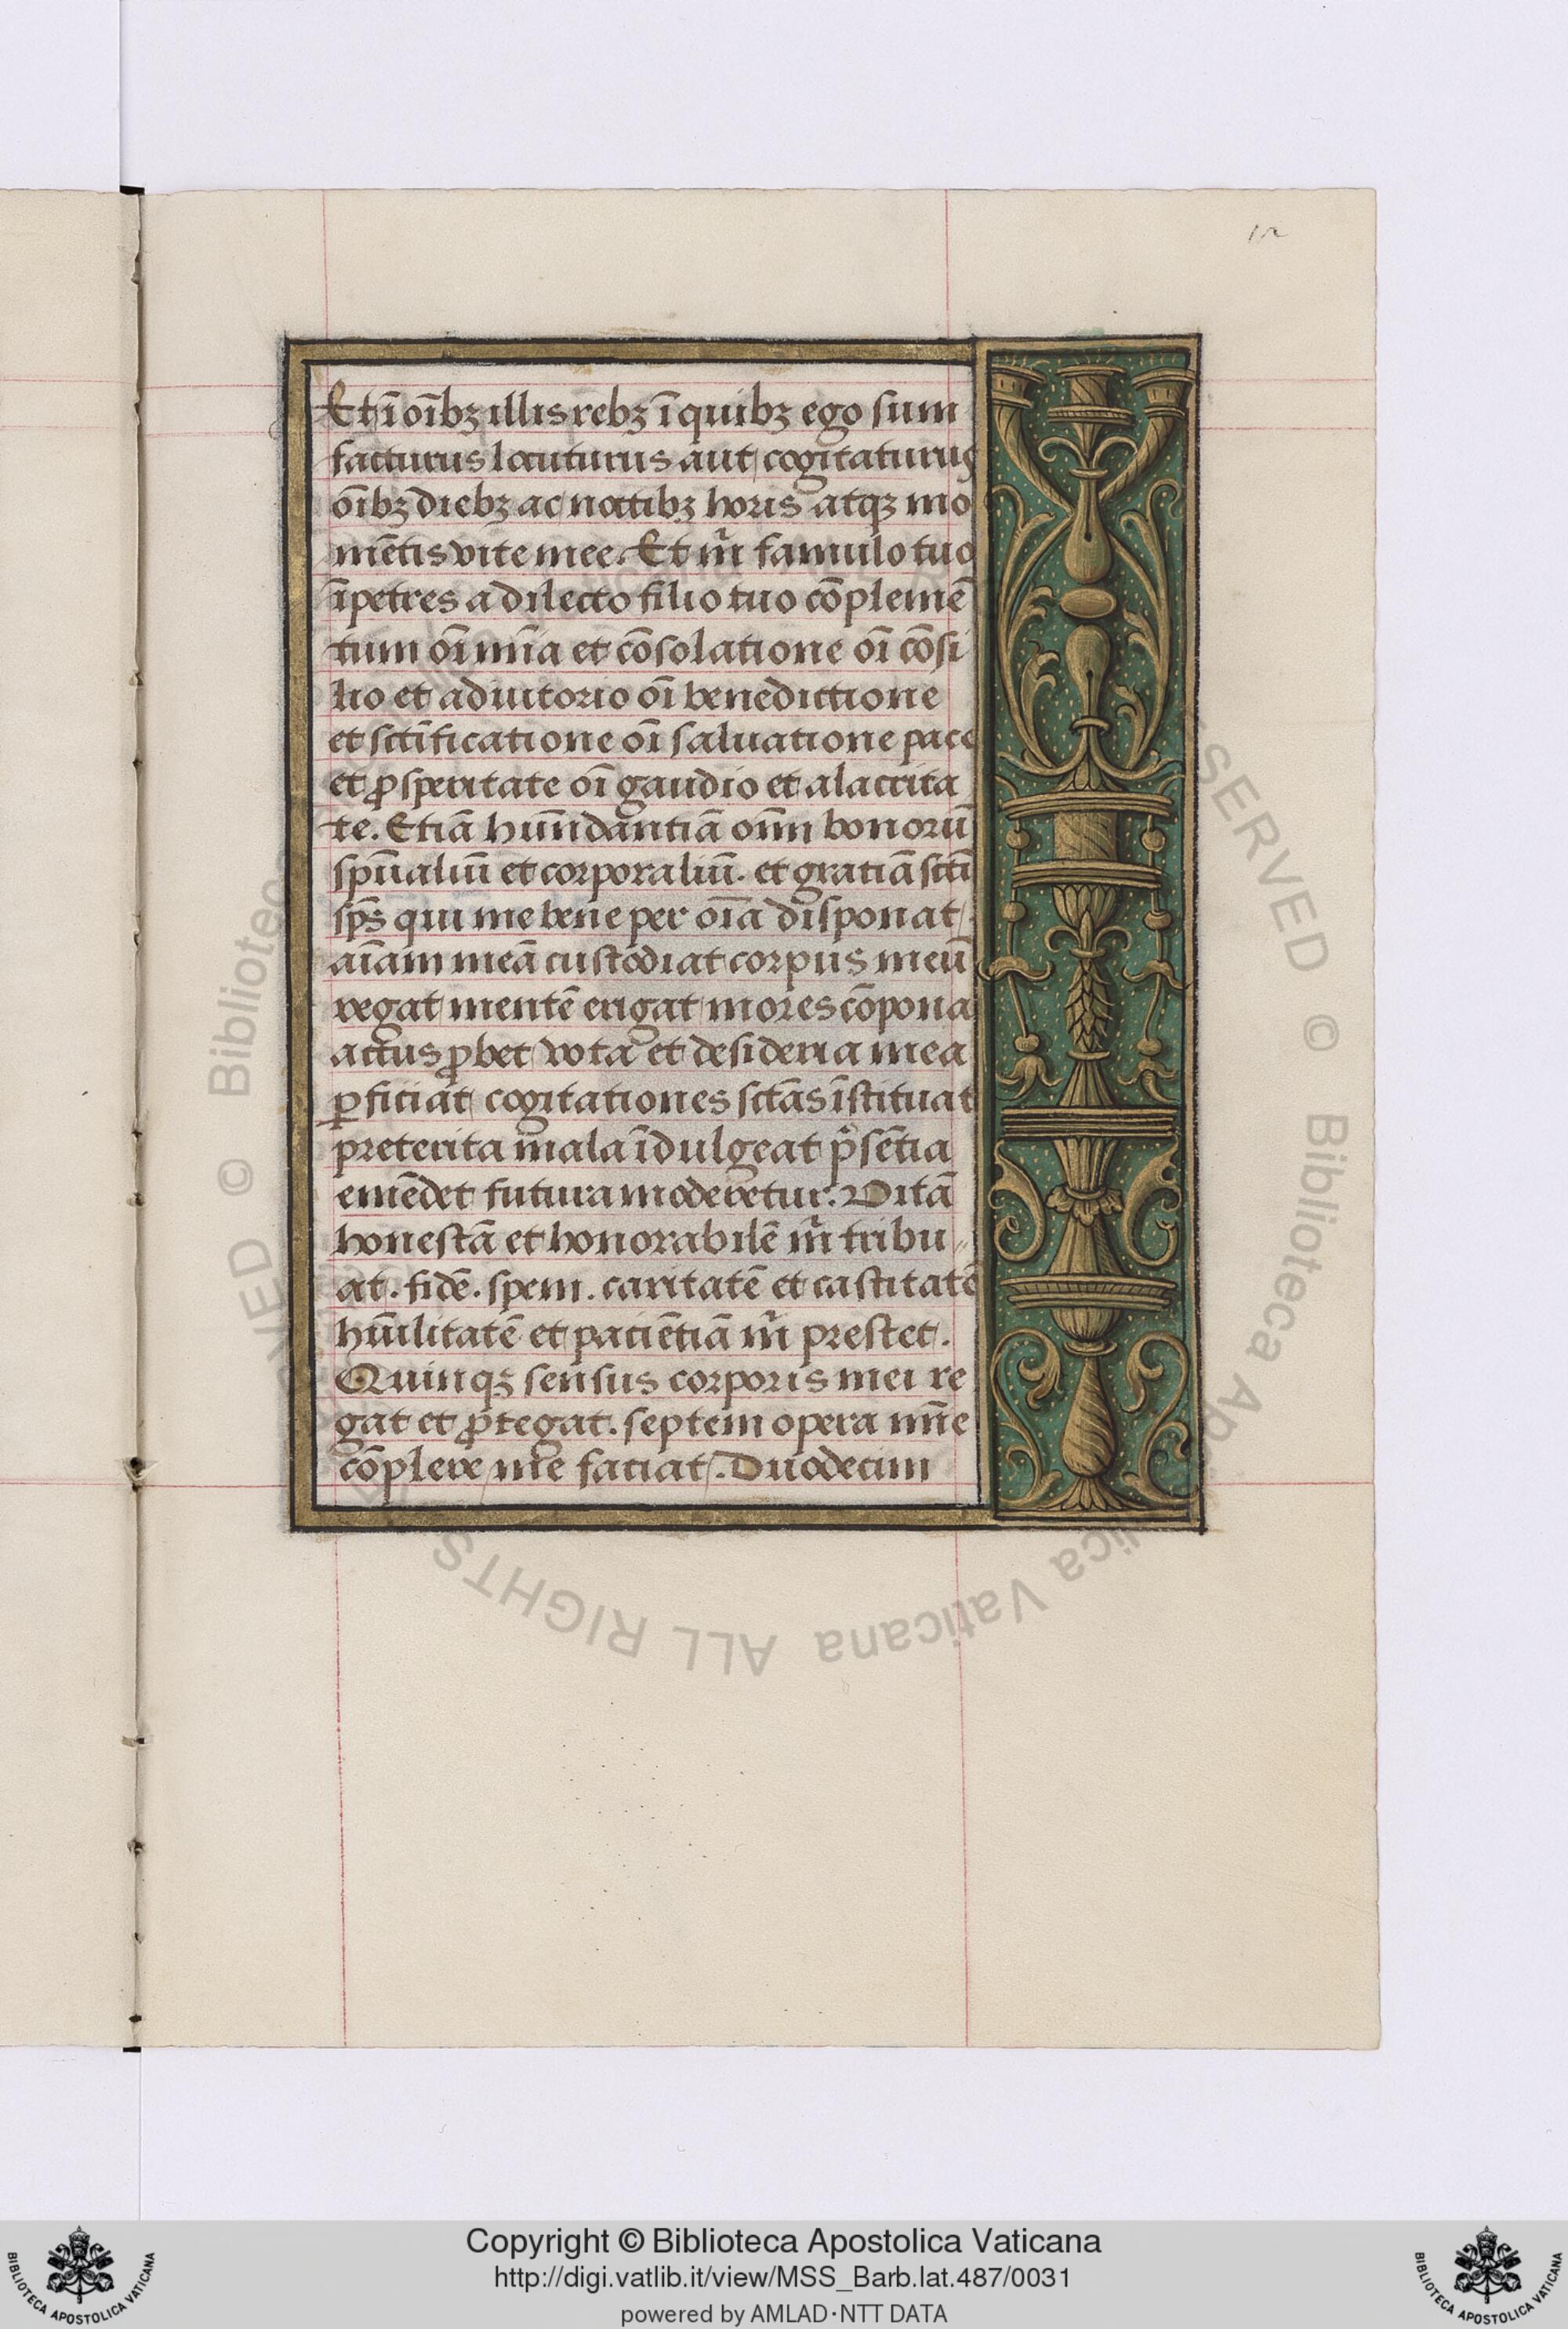 12
Et ī oībꝫ illis rebꝫ ī quibꝫ ego sum
facturus locuturus aut cogitaturus
oībꝫ diebꝫ ac noctibꝫ horis atqꝫ mo
mētis vite mee. Et m̄ famulo tuo
īpetres a dilecto filio tuo cōplemē
tum oī mīa et cōsolatione oī cōsi
lio et adiutorio oī benedictione
et sctīficatione oī saluatione pace
et ꝓsperitate oī gaudio et alacrita
te. Etiā hūndantiā oīm bonorū
spūaliū et corporaliū. et gratiā sctī
sp̄s qui me bene per oīa disponat
aīam meā custodiat corpus meū
regat mentē erigat mores cōpona
actus ꝓbet vota et desideria mea
ꝑficiat cogitationes sctās īstituat
preterita mala īdulgeat p̄sētia
emēdet futura moderetur. Vitā
honestā et honorabilē m̄ tribu
at. fidē. spem. caritatē et castitatē
hūilitatē et patiētiā m̄ prestet.
Quinqꝫ sensus corporis mei re
gat et ꝓtegat. septem opera mīe
cōplere me faciat. Duodecim
© Biblioteca Apostolica Vaticana ALL RIGHTS RESERVED
Copyright © Biblioteca Apostolica Vaticana
http://digi.vatlib.it/view/MSS_Barb.lat.487/0031
powered by AMLAD·NTT DATA
BIBLIOTECA APOSTOLICA VATICANA
BIBLIOTECA APOSTOLICA VATICANA